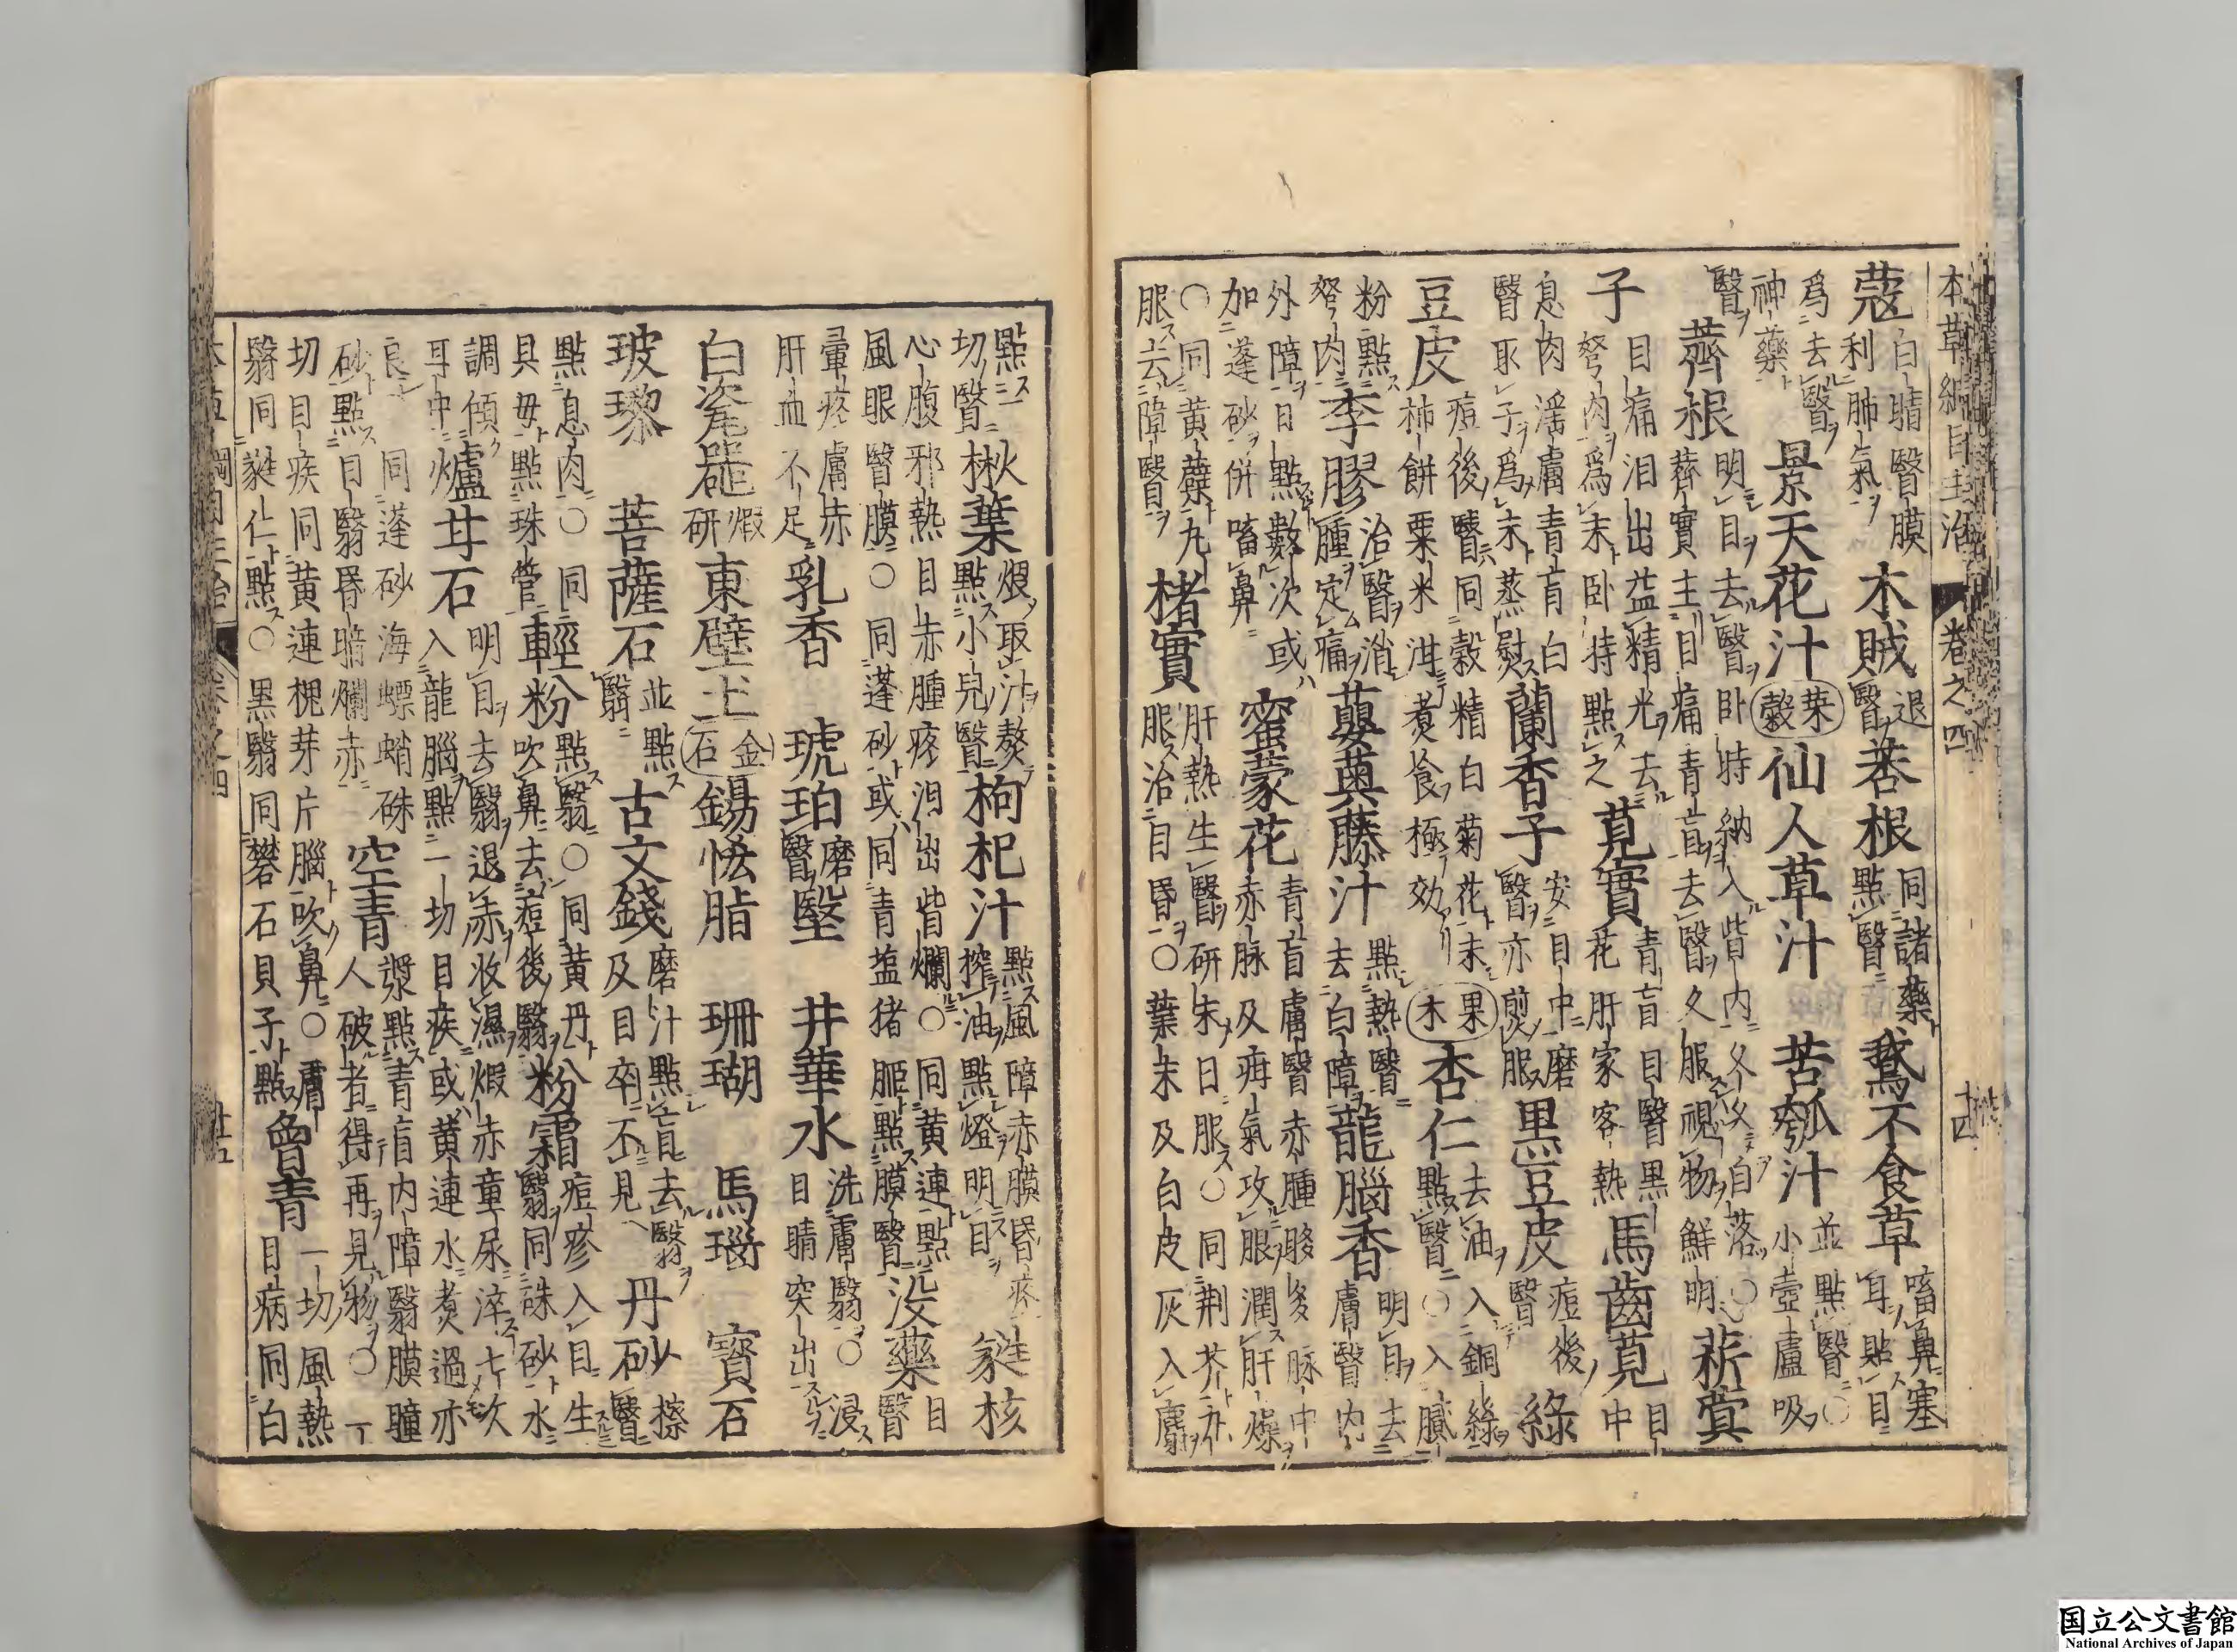 本草綱目主治 卷之四 十四
蔻 白睛瞖膜利肺氣 木賊 退瞖 根 同諸藥點瞖 鵝不食草 㗜鼻塞耳貼目
爲去瞖神藥 景天花汁 菜穀 仙人草汁 苦瓠汁 並點瞖○小壺盧吸
瞖 薺根 明目去瞖卧時納入眥内久久自落○薺實主目痛青盲去瞖久服視物鮮明 菥蓂
子 目痛泪出益精光去弩肉爲末卧時點之 莧實 青盲目瞖黑花肝家客熱 馬齒莧 目中
息肉淫膚青盲白瞖取子爲末蒸熨 蘭香子 安目中磨瞖亦煎服 黑豆皮 痘後瞖 綠
豆皮 痘後瞖同穀精白菊花末柿餅粟米泔煮食極効 果木 杏仁 去油入銅綠點瞖○入膩
粉點弩肉 李膠 治瞖消腫定痛 蘡薁藤汁 點熱瞖去白障 龍腦香 明目去膚瞖内
外障日點數次或加蓬砂併㗜鼻 蜜蒙花 青盲膚瞖赤腫眵多脉中赤脉及疳氣攻眼潤肝燥
○同黃蘗丸服去障瞖 楮實 肝熱生瞖研末日服○同荆芥服治目昏○葉末及白皮灰入麝
點一切瞖 楸葉 煨取汁熬點小兒瞖 枸杞汁 點風障赤膜昏疼搾油點燈明目 蕤核
心腹邪熱目赤腫疼泪出眥爛○同黃連點風眼瞖膜○同蓬砂或同青塩猪胰點膜瞖 没藥 目瞖
暈疼膚赤肝血不足 乳香 琥珀 磨瞖 瑿 井華水 洗膚翳○浸目睛突出
白瓷器 煆研 東壁土 金石 錫恡脂 珊瑚 馬瑙 寶石
玻瓈 菩薩石 並點翳 古文錢 磨汁點盲去翳及目卒不見 丹砂 擦瞖
點息肉○同貝母點珠管 輕粉 點翳○同黃丹吹鼻去痘後翳 粉霜 痘疹入目生翳同硃砂水
調傾耳中 爐甘石 明目去翳退赤收濕煆赤童尿淬七次入龍腦點一切目疾或黃連水煮過亦
良 同蓬砂海螵蛸硃砂點目翳昏暗爛赤 空青 漿點青盲内障翳膜瞳人破者得再見物○一
切目疾同黃連槐芽片腦吹鼻○膚翳同蕤仁點○黑翳同礬石貝子點 曾青 一切風熱目病同白
国立公文書館
National Archives of Japan